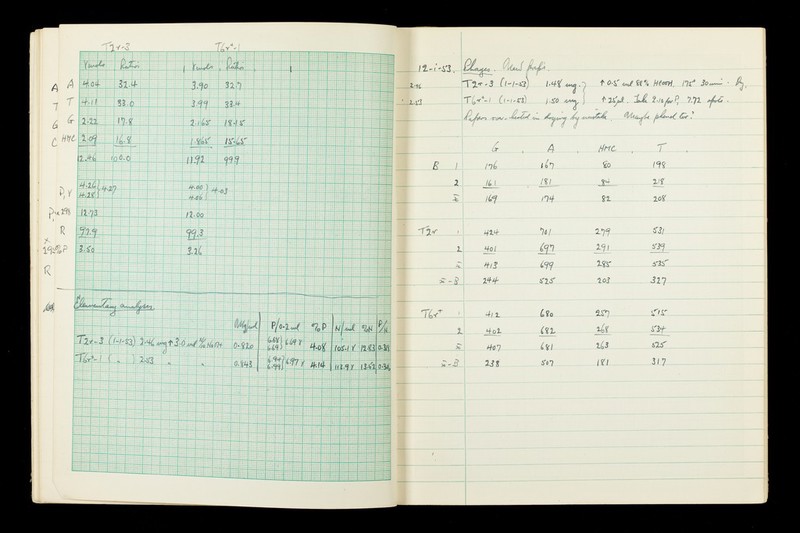 T2r-3 T6r+-1
μmols Ratio μmols Ratio
A A 4.04 32.4 3.90 32.7
T T 4.11 33.0 3.99 33.4
G G 2.22 17.8 2.165 18.15
C HMC 2.09 16.8 1.865 15.65
12.46 100.0 11.92 99.9
P, γ 4.26 4.28 } 4.27 4.00 4.06 } 4.03
12.73 12.00
R 97.9 99.3
3.50 3.26
R
Elementary analyses
Mg/ml P/0.2 ml %P N/ml %N P/N
T2r-3 (1-1-53) 2.46 mg ↑ 3.0 ml 0.820 6.69 γ 4.08 105.1 γ 12.83
T6r+-1 ( " ) 2.53 " " 0.843 6.94 6.99 } 6.97 γ 4.14 113.9 γ
12-i-53. Phages. New preps.
2.46 T2r-3 (1-1-53) 1.48 mg. } ↑ 0.5 ml 88% HCOOH. 175° 30 min.
2.53 T6r+-1 (1-1-53) 1.50 mg } ↑ 25 μl. Take 2.10 for P, 7.72 spots.
Papers now heated in drying by mistake.
G A HMC T
B 1 176 167 80 198
2 161 181 84 218
x̄ 169 174 82 208
T2r 1 424 701 279 531
2 401 697 291 539
x̄ 413 699 285 535
x̄-B 244 525 203 327
T6r+ 1 412 680 257 515
2 402 682 268 534
x̄ 407 681 263 525
x̄-B 238 507 181 317